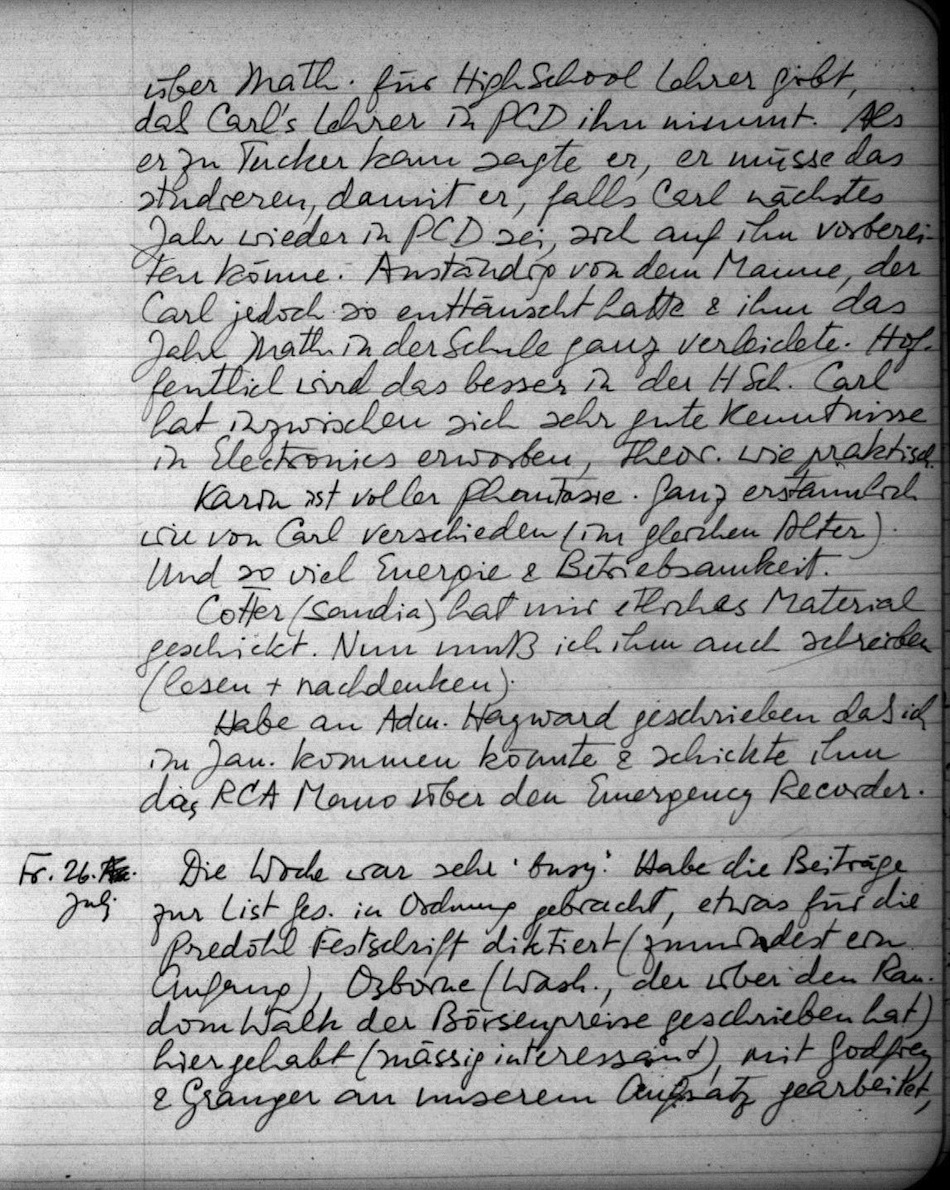 über Math. für HighSchool Lehrer gibt,
das Carl's Lehrer in PCD ihn nimmt. Als
er zu Tucker kam sagte er, er müsse das
studieren, damit er, falls Carl nächstes
Jahr wieder in PCD sei, sich auf ihn vorberei-
ten könne. Anständig von dem Manne, der
Carl jedoch so enttäuscht hatte & ihm das
Jahr Math in der Schule ganz verleidete. Hof-
fentlich wird das besser in der HSch. Carl
hat inzwischen sich sehr gute Kenntnisse
in Electronics erworben, theor. wie praktisch.
Karin ist voller Phantasie. Ganz erstaunlich
wie von Carl verschieden (im gleichen Alter).
Und so viel Energie & Betriebsamkeit.
Cotter (Sandia) hat mir etliches Material
geschickt. Nun muß ich ihm auch schreiben
(lesen + nachdenken).
Habe an Adm. Hayward geschrieben das ich
im Jan. kommen könnte & schickte ihm
das RCA Memo über den Emergency Recorder.
Fr. 26. Juli Die Woche war sehr 'busy'. Habe die Beiträge
zur List Ges. in Ordnung gebracht, etwas für die
Predöhl Festschrift diktiert (zumindest ein
Anfang), Osborne (Wash., der über den Ran-
dom Walk der Börsenpreise geschrieben hat)
hier gehabt (mässig interessant), mit Godfrey
& Granger an unserem Aufsatz gearbeitet,